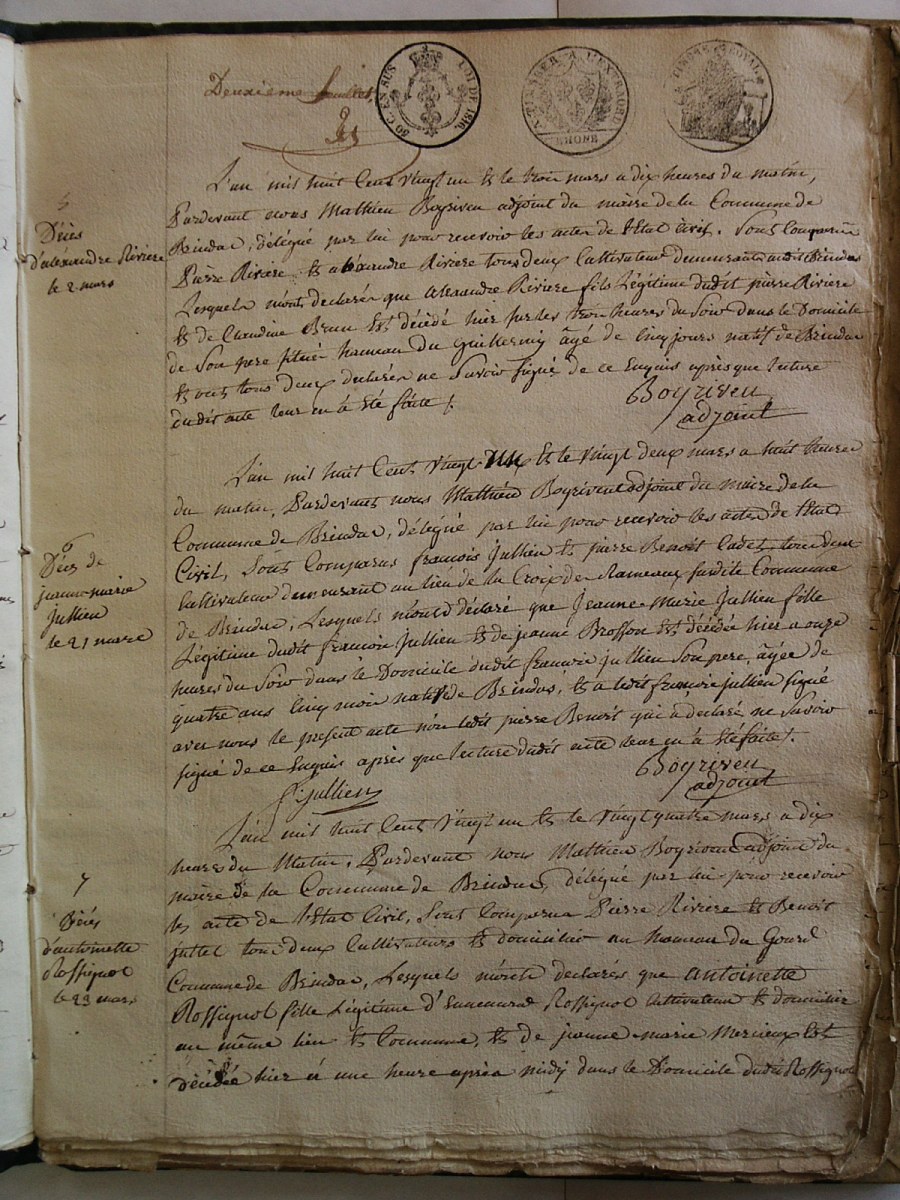 Deuxieme feuillet
50 C. EN SUS LOI DE 1816.
A TIMBRER A L'EXTRAORD
RHONE
TIMBRE ROYAL
L'an mil huit Cent Vingt un & le trois mars a dix heures du matin,
Pardevant nous Mathieu Boyriven adjoint du maire de la Commune de
Brindas, délégué par lui pour recevoir les actes de l'Etat Civil. Sont Comparus
Pierre Riviere & alexandre Riviere tous deux Cultivateurs demeurants audit Brindas
Lesquels m'ont declarés que Alexandre Riviere fils Légitime dudit pierre Riviere
& de Claudine Brun Est décédé hier sur les trois heures du Soir dans le Domicile
de Son pere situé hameau du Guillermy âgé de Cinq jours natif de Brindas
& ont tous deux declarés ne Savoir signé de ce Enquis après que lecture
dudit acte leur en à Eté faite !.
Boyriven
adjoint
5
Décès
d'alexandre Riviere
le 2 mars
L'an mil huit Cent Vingt un & le Vingt deux mars a huit heures
du matin, Pardevant nous Mathieu Boyriven adjoint du maire de la
Commune de Brindas, délégué par lui pour recevoir les actes de l'Etat
Civil, Sont Comparus francois Jullien & pierre Benoit Cadet, tous deux
Cultivateurs demeurant au lieu de la Croix des Rameaux susdite Commune
de Brindas, Lesquels m'ont déclaré que Jeanne Marie Jullien fille
Légitime dudit francois Jullien & de jeanne Brosson Est décédée hier a onze
heures du Soir dans le Domicile dudit francois Jullien Son pere, âgée de
quatre ans Cinq mois native de Brindas, & à ledit francois jullien signé
avec nous le present acte non ledit pierre Benoit qui a declaré ne Savoir
signé de ce Enquis après que lecture dudit acte leur en à Eté faite !.
f. jullien
Boyriven
adjoint
6
Décès de
jeanne marie
Jullien
le 21 marse
L'an mil huit Cent Vingt un & le Vingt quatre mars a dix
heures du Matin, Pardevant nous Mathieu Boyriven adjoint du
maire de la Commune de Brindas, délégué par lui pour recevoir
les acte de l'Etat Civil, Sont Comparus Pierre Riviere & Benoit
juttet tous deux Cultivateurs & domicilié au hameau du Gourd
Commune de Brindas, Lesquels m'ont declarés que Antoinette
Rossignol fille Légitime d' Rossignol Cultivateur & domicilié
au même lieu & Commune, & de jeanne marie Mercieux Est
décédée hier à une heure après midy dans le Domicile dudit Rossignol
7
Décès
d'antoinette
Rossignol
le 23 mars